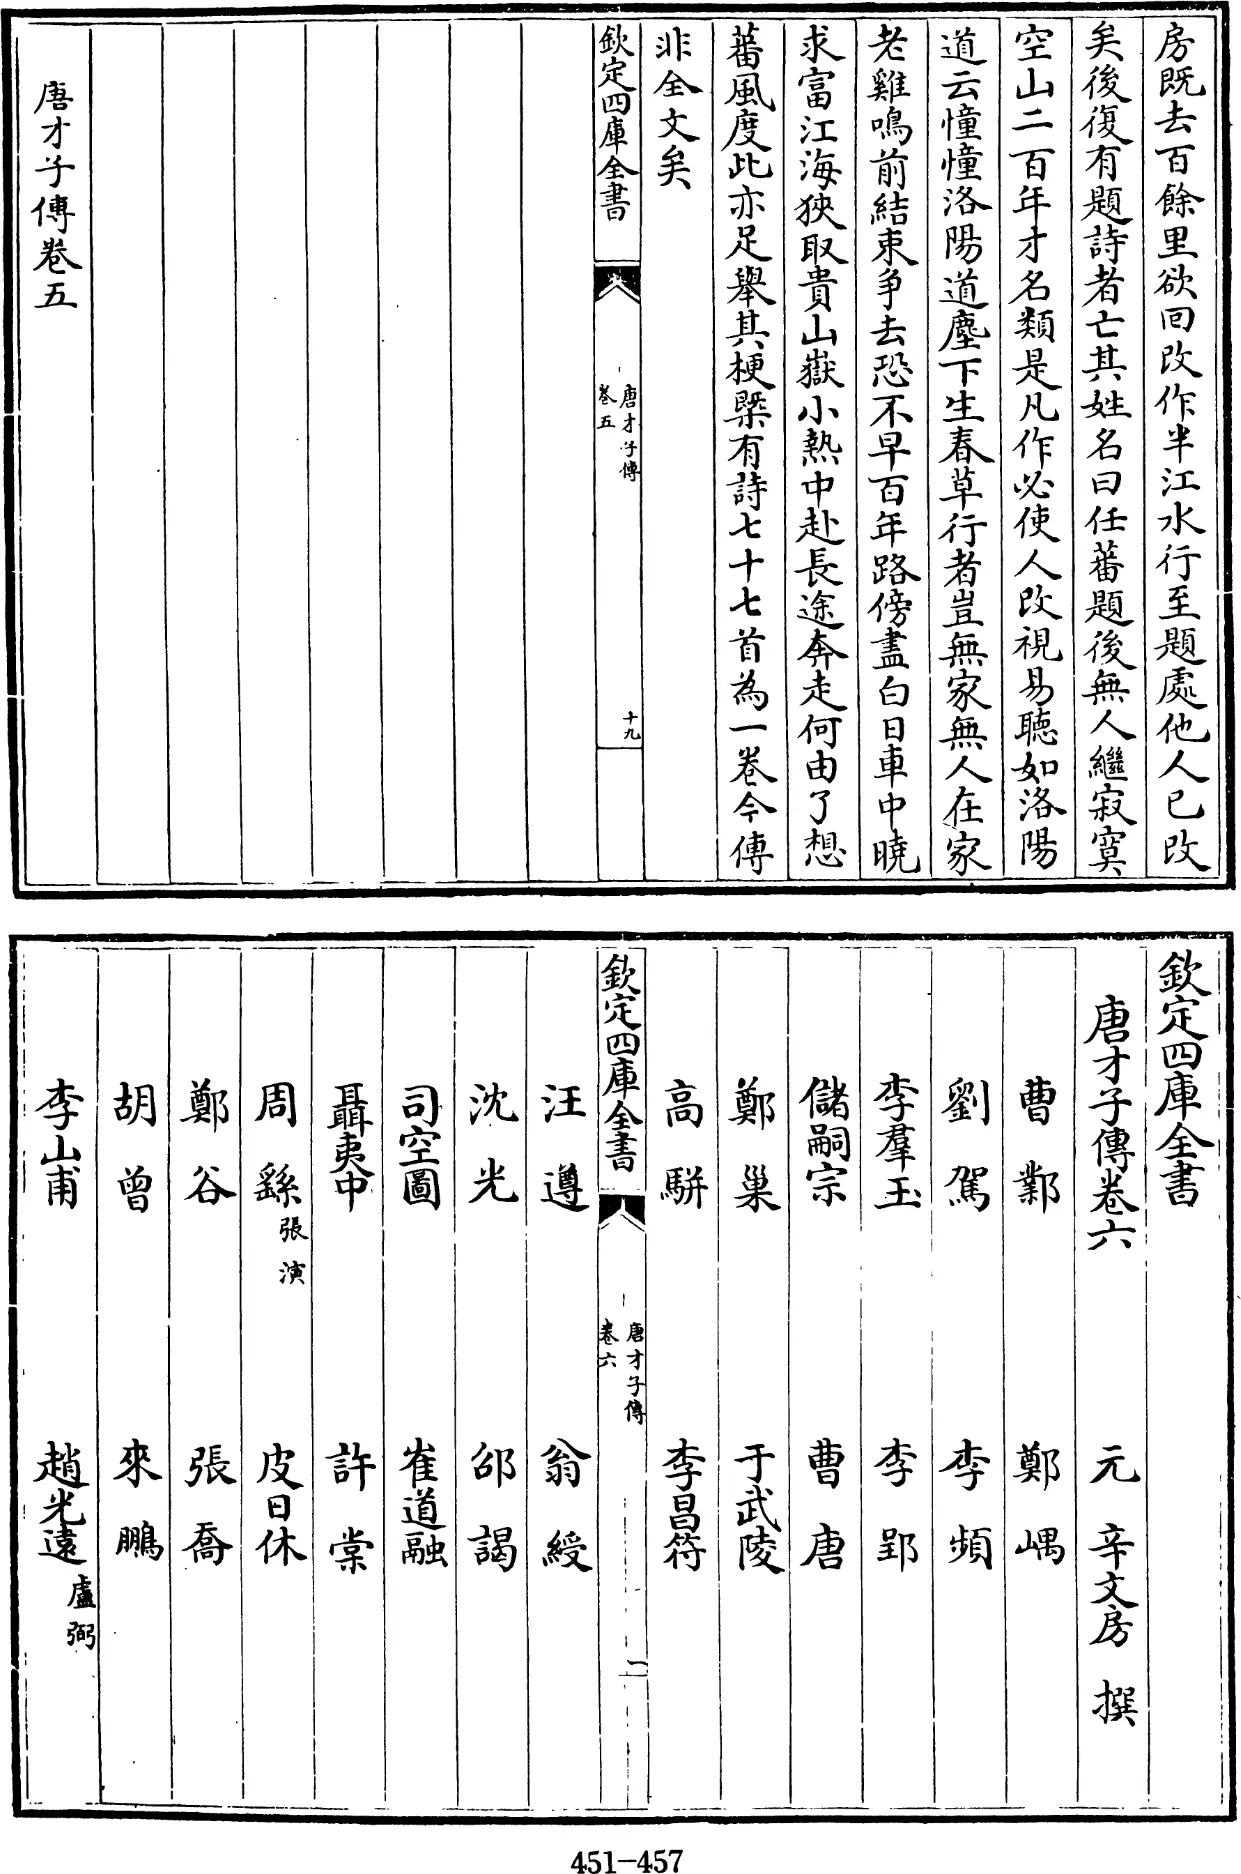 房既去百餘里欲回改作半江水行至題處他人已改
矣後復有題詩者亡其姓名曰任蕃題後無人繼寂寞
空山二百年才名類是凡作必使人改視易聽如洛陽
道云憧憧洛陽道塵下生春草行者豈無家無人在家
老雞鳴前結束爭去恐不早百年路傍盡白日車中曉
求富江海狹取貴山嶽小熱中赴長途奔走何由了想
蕃風度此亦足舉其梗槩有詩七十七首為一卷今傳
非全文矣
欽定四庫全書
唐才子傳
卷五
十九
唐才子傳卷五
欽定四庫全書
唐才子傳卷六
元 辛文房 撰
曹鄴 鄭嵎
劉駕 李頻
李羣玉 李郢
儲嗣宗 曹唐
鄭巢 于武陵
高駢 李昌符
欽定四庫全書
唐才子傳
卷六
一
汪遵 翁綬
沈光 邵謁
司空圖 崔道融
聶夷中 許棠
周繇張演 皮日休
鄭谷 張喬
胡曾 來鵬
李山甫 趙光遠盧弼
451-457